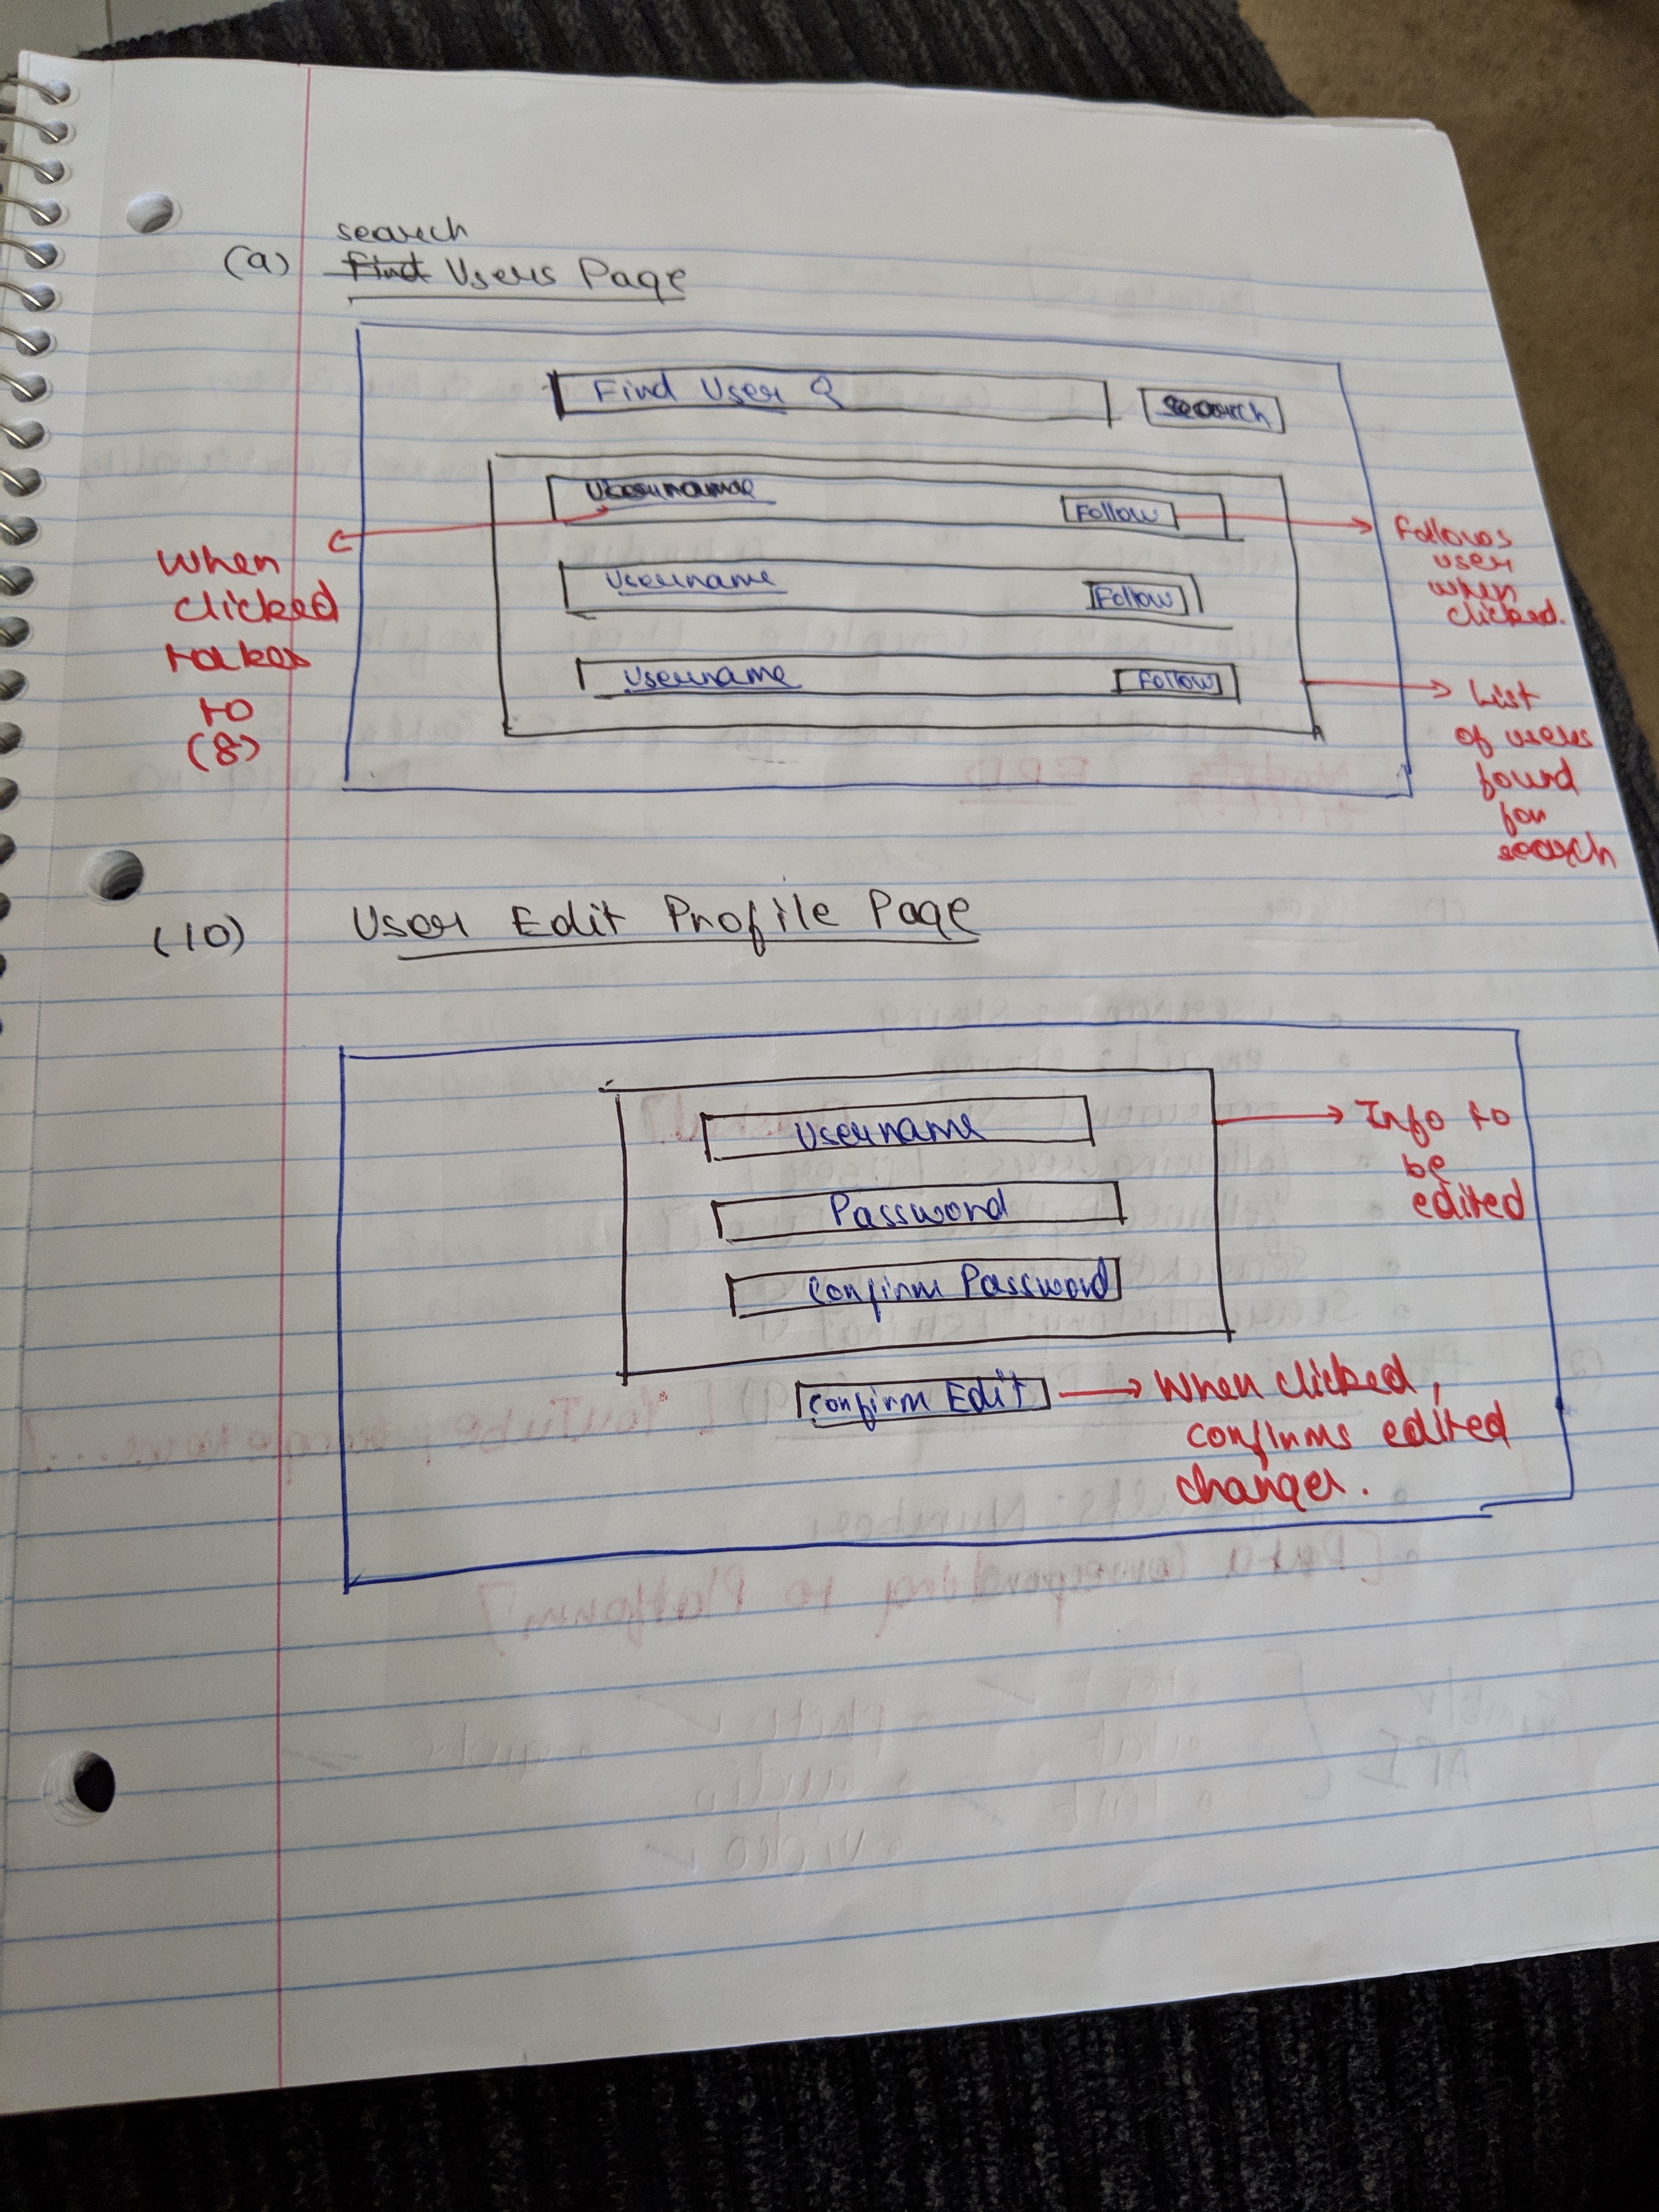 search
(9) Find Users Page
Find User
search
Username
Follow
Username
Follow
Username
Follow
When
clicked
takes
to
(8)
Follows
user
when
clicked.
List
of users
found
for
search
(10) User Edit Profile Page
Username
Password
Confirm Password
Confirm Edit
Info to
be
edited
When clicked,
confirms edited
changes.